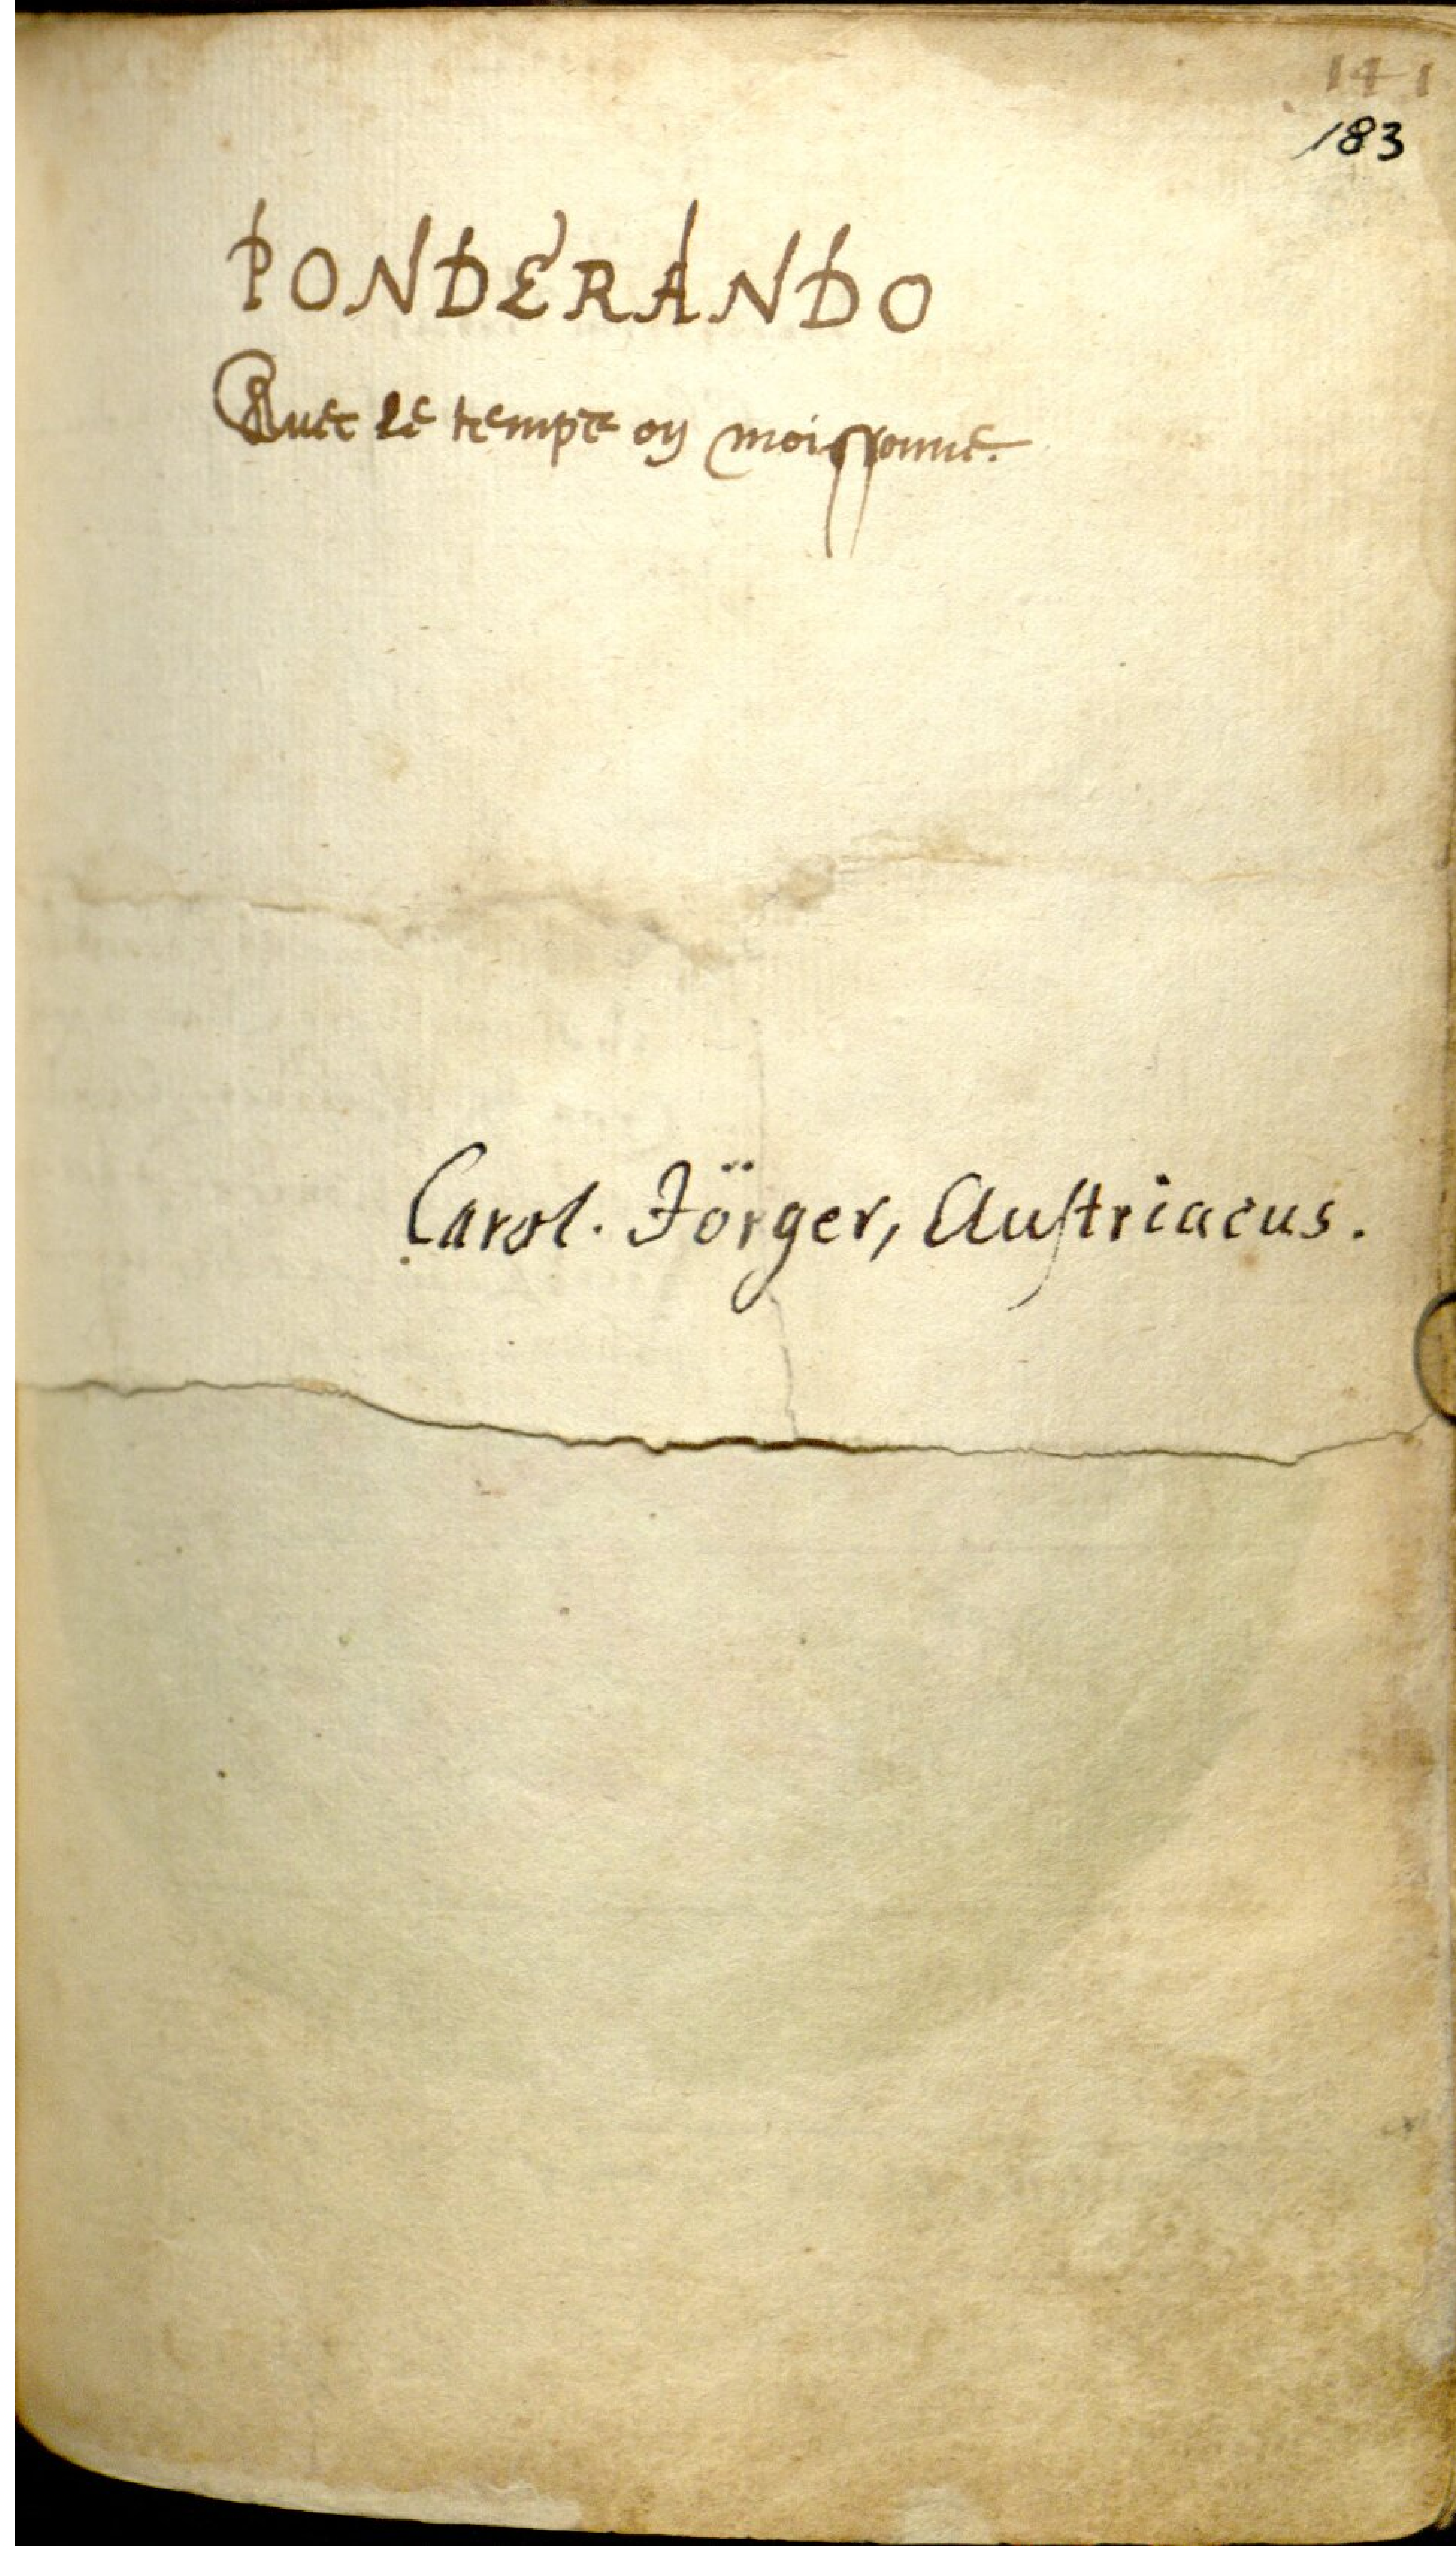 141
183
PONDERANDO
Auec le temps on moissonne.
Carol. Jörger, Austriacus.